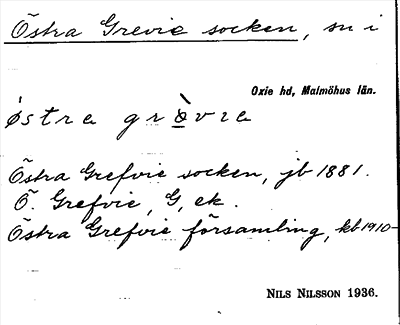 Östra Grevie socken, sn i
Oxie hd, Malmöhus län.
östra grèvıa
Östra Grefvie socken, jb 1881.
Ö. Grefvie, G, ek.
Östra Grefvie församling, kb 1910-
NILS NILSSON 1936.